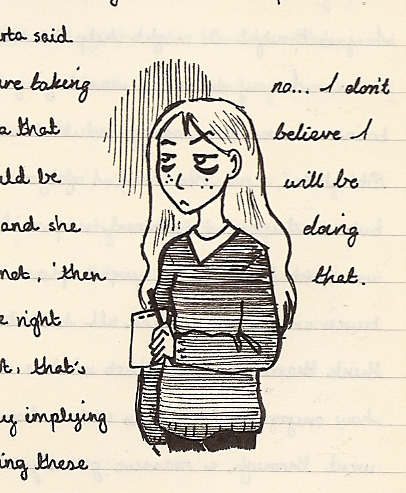 rta said
re taking
a that
uld be
and she
not, 'then
e right
t, that's
y implying
ing these
no... I don't
believe I
will be
doing
that.